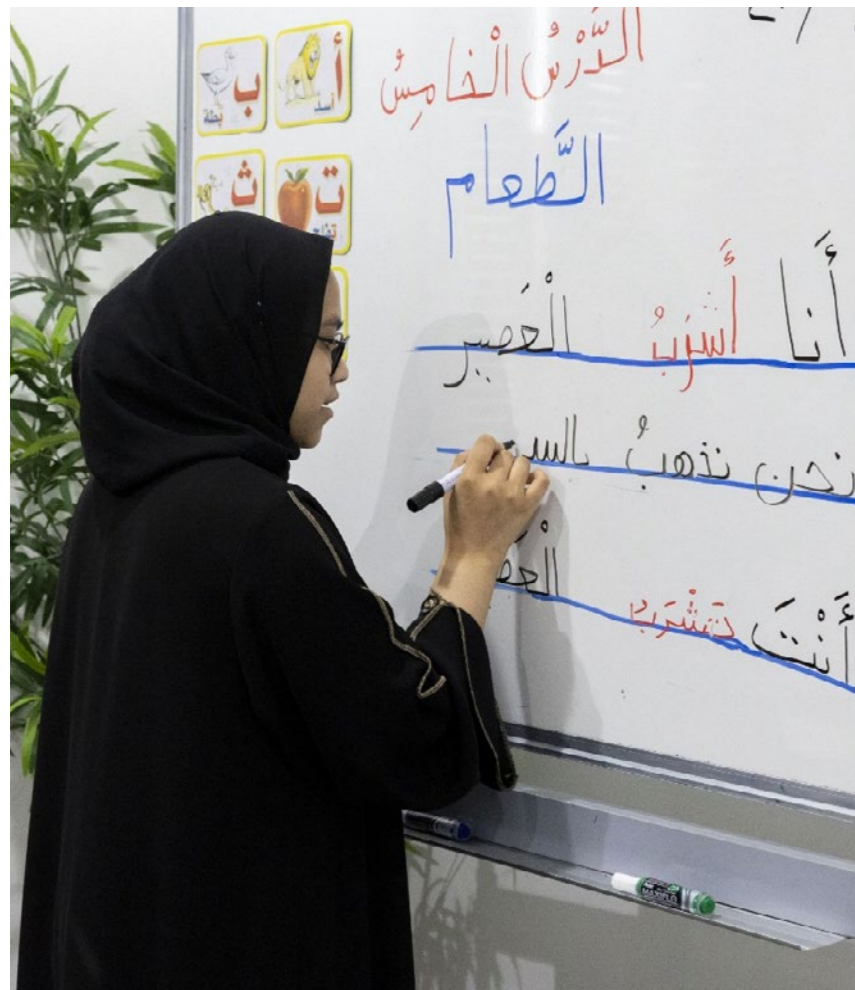 أ
أسد
ب
بطة
ت
تفاح
ث
الدَّرْسُ الْخَامِسُ
الطَّعام
أَنا أَشْرَبُ الْعَصير
نحن نذهبُ
أَنْتَ تَشْرَبُ